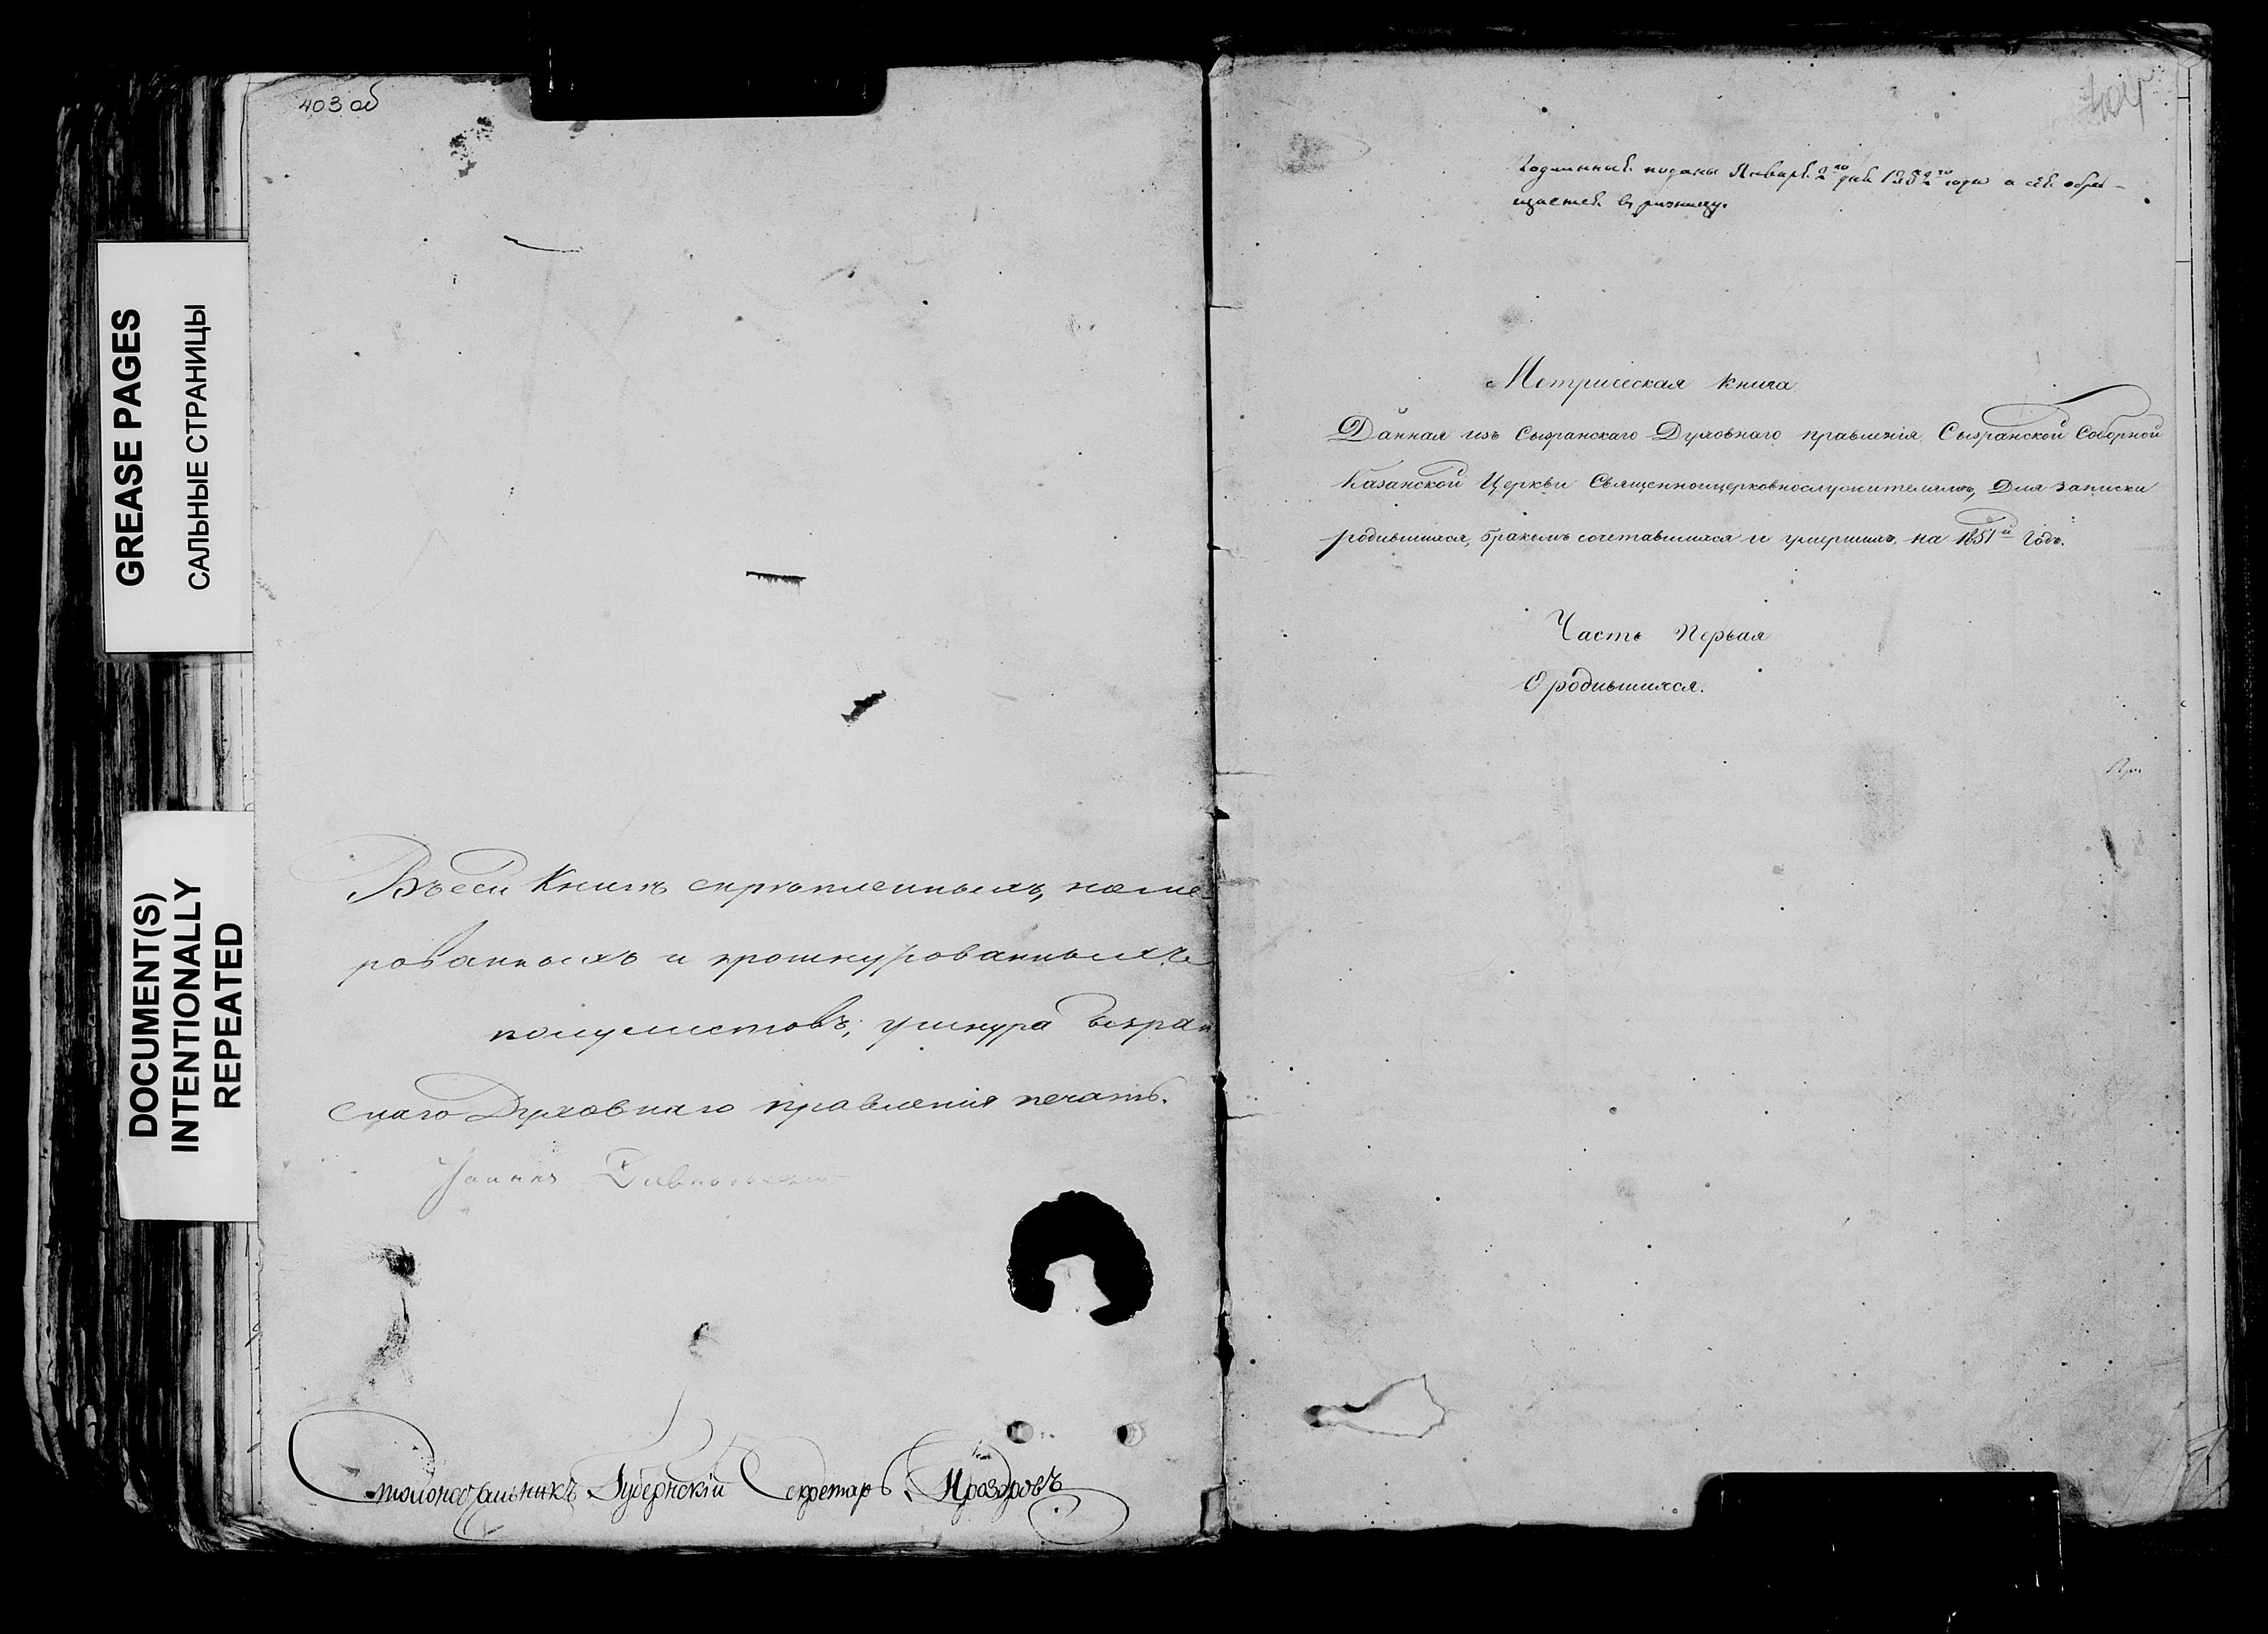 403 об
GREASE PAGES
САЛЬНЫЕ СТРАНИЦЫ
DOCUMENT(S)
INTENTIONALLY
REPEATED
Въ сей Книгѣ скрѣпленныхъ, номе-
рованныхъ и прошнурованныхъ
полулистовъ; у шнура Сызран
скаго Духовнаго правленія печать.
Іоаннъ
Столоначальникъ Губернскій Секретарь
404
поданы Января 2го дня 1852го года а сія обра-
щается въ ризницу.
Метрическая Книга
Данная изъ Сызранскаго Духовнаго правленія Сызранской Соборной
Казанской Церкви Священноицерковнослужителямъ, Для записки
родившихся, бракомъ сочетавшихся и умершихъ, на 1851й Годъ.
Часть Первая
О родившихся.